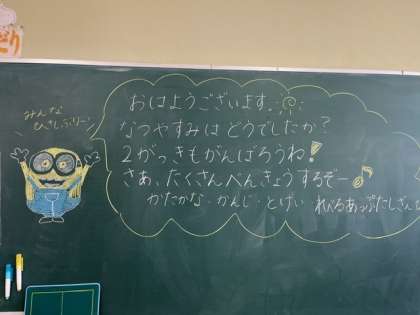 どり
みんな
ひさしぶりー
おはようございます。
なつやすみは どうでしたか？
2がっきもがんばろうね!
さあ、たくさんべんきょうするぞー♪
かたかな・かんじ・とけい れべるあっぷだ